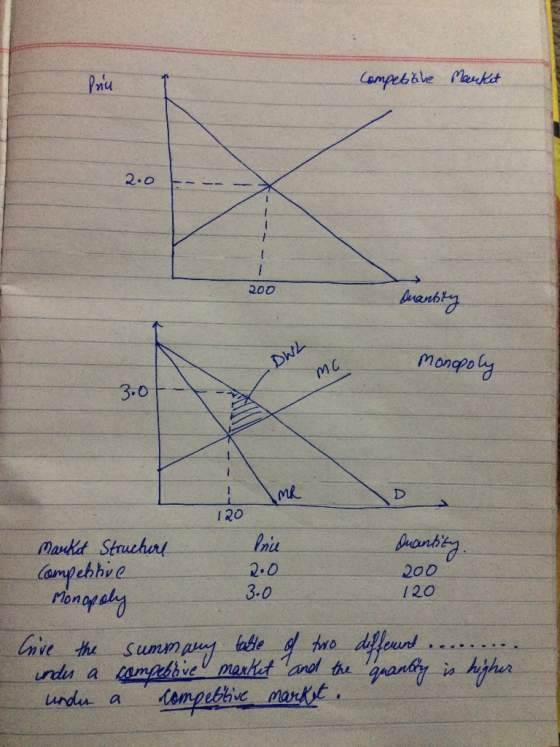 Price
Competitive Market
2.0
200
Quantity
DWL
MC
Monopoly
3.0
MR
D
120
Market Structure Price Quantity.
Competitive 2.0 200
Monopoly 3.0 120
Give the summary table of two different .........
under a competitive market and the quantity is higher
under a competitive market.